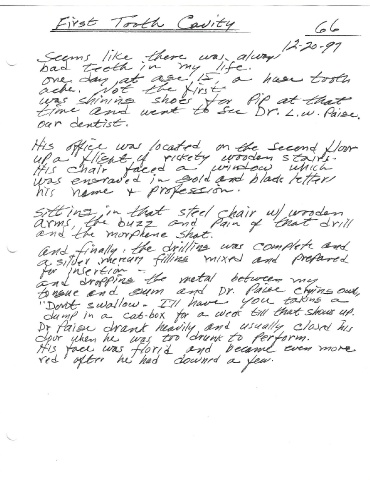 First Tooth Cavity
66
12-20-97
Seems like there was always
bad teeth in my life.
one day, at age 15, a huge tooth
ache. Not the first
was shining shoes for Pip at that
time and went to see Dr. L.W. Paise,
our dentist.
His office was located on the second floor
up a flight of rickety wooden stairs.
His chair faced a window which
was engraved in gold and black letters
his name & profession.
Sitting in that steel chair w/ wooden
arms, the buzz and pain of that drill
and the morphone shot.
and finally, the drilling was complete and
a silver mercury filling mixed and prepared
for insertion -
and dropping the metal between my
tongue and gum and Dr. Paise crying out,
"Don't swallow. I'll have you taking a
dump in a cat-box for a week till that shows up.
Dr Paise drank heavily and usually closed his
door when he was too drunk to perform.
His face was florid and became even more
red after he had downed a few.